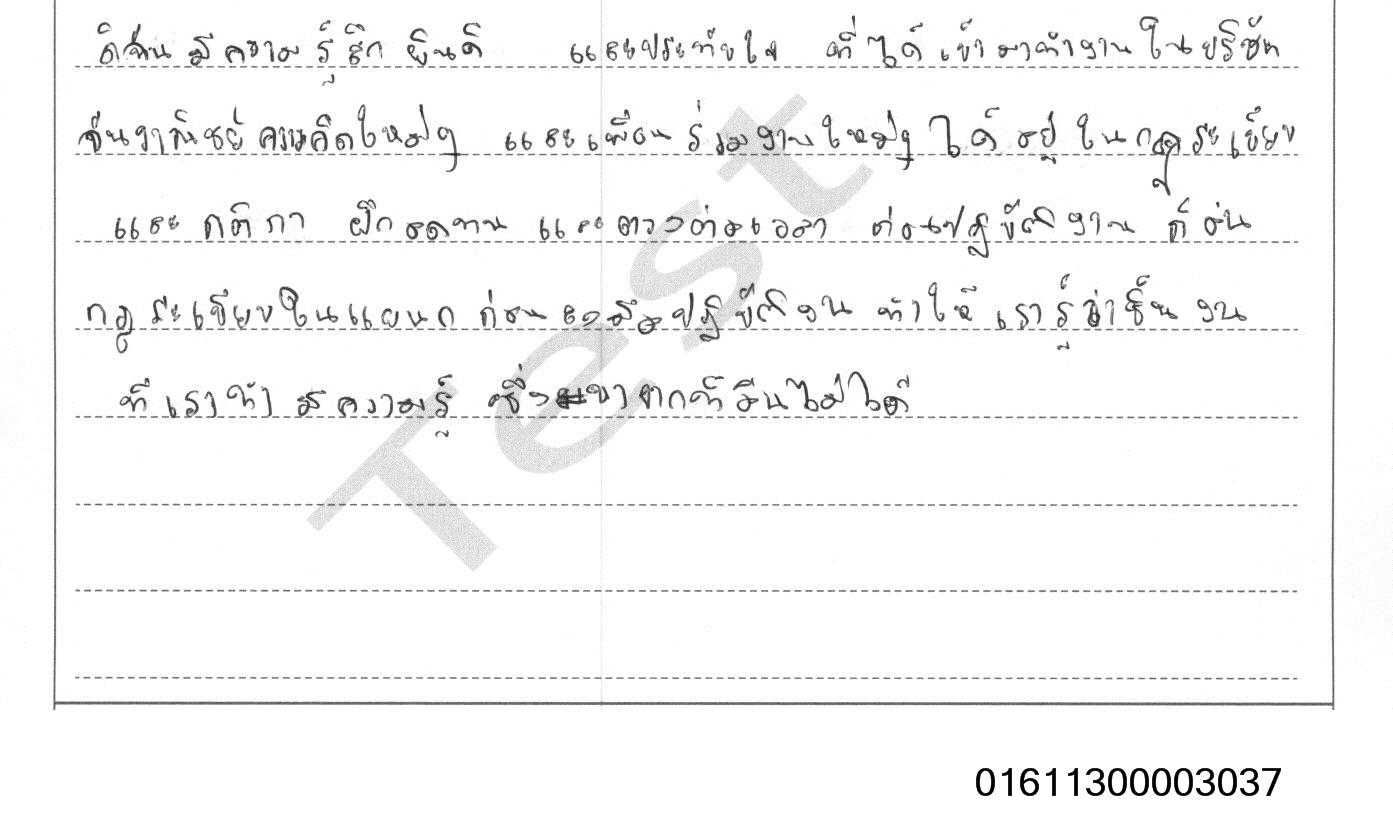 ดิฉันมีความรู้สึกยินดี และประทับใจ ที่ได้เข้ามาทำงานในบริษัท
ความคิดใหม่ๆ และเพื่อนร่วมงานใหม่ๆ ได้อยู่ในกฎระเบียบ
และกติกา ฝึกอดทน และตรงต่อเวลา ก่อนปฏิบัติงาน ก็
กฎระเบียบในแผนก ก่อนลงมือปฏิบัติงาน ทำให้เรารู้ว่าชิ้นงาน
ที่เราทำมีความรู้ ซึ่งหาจากที่อื่นไม่ได้
Test
01611300003037